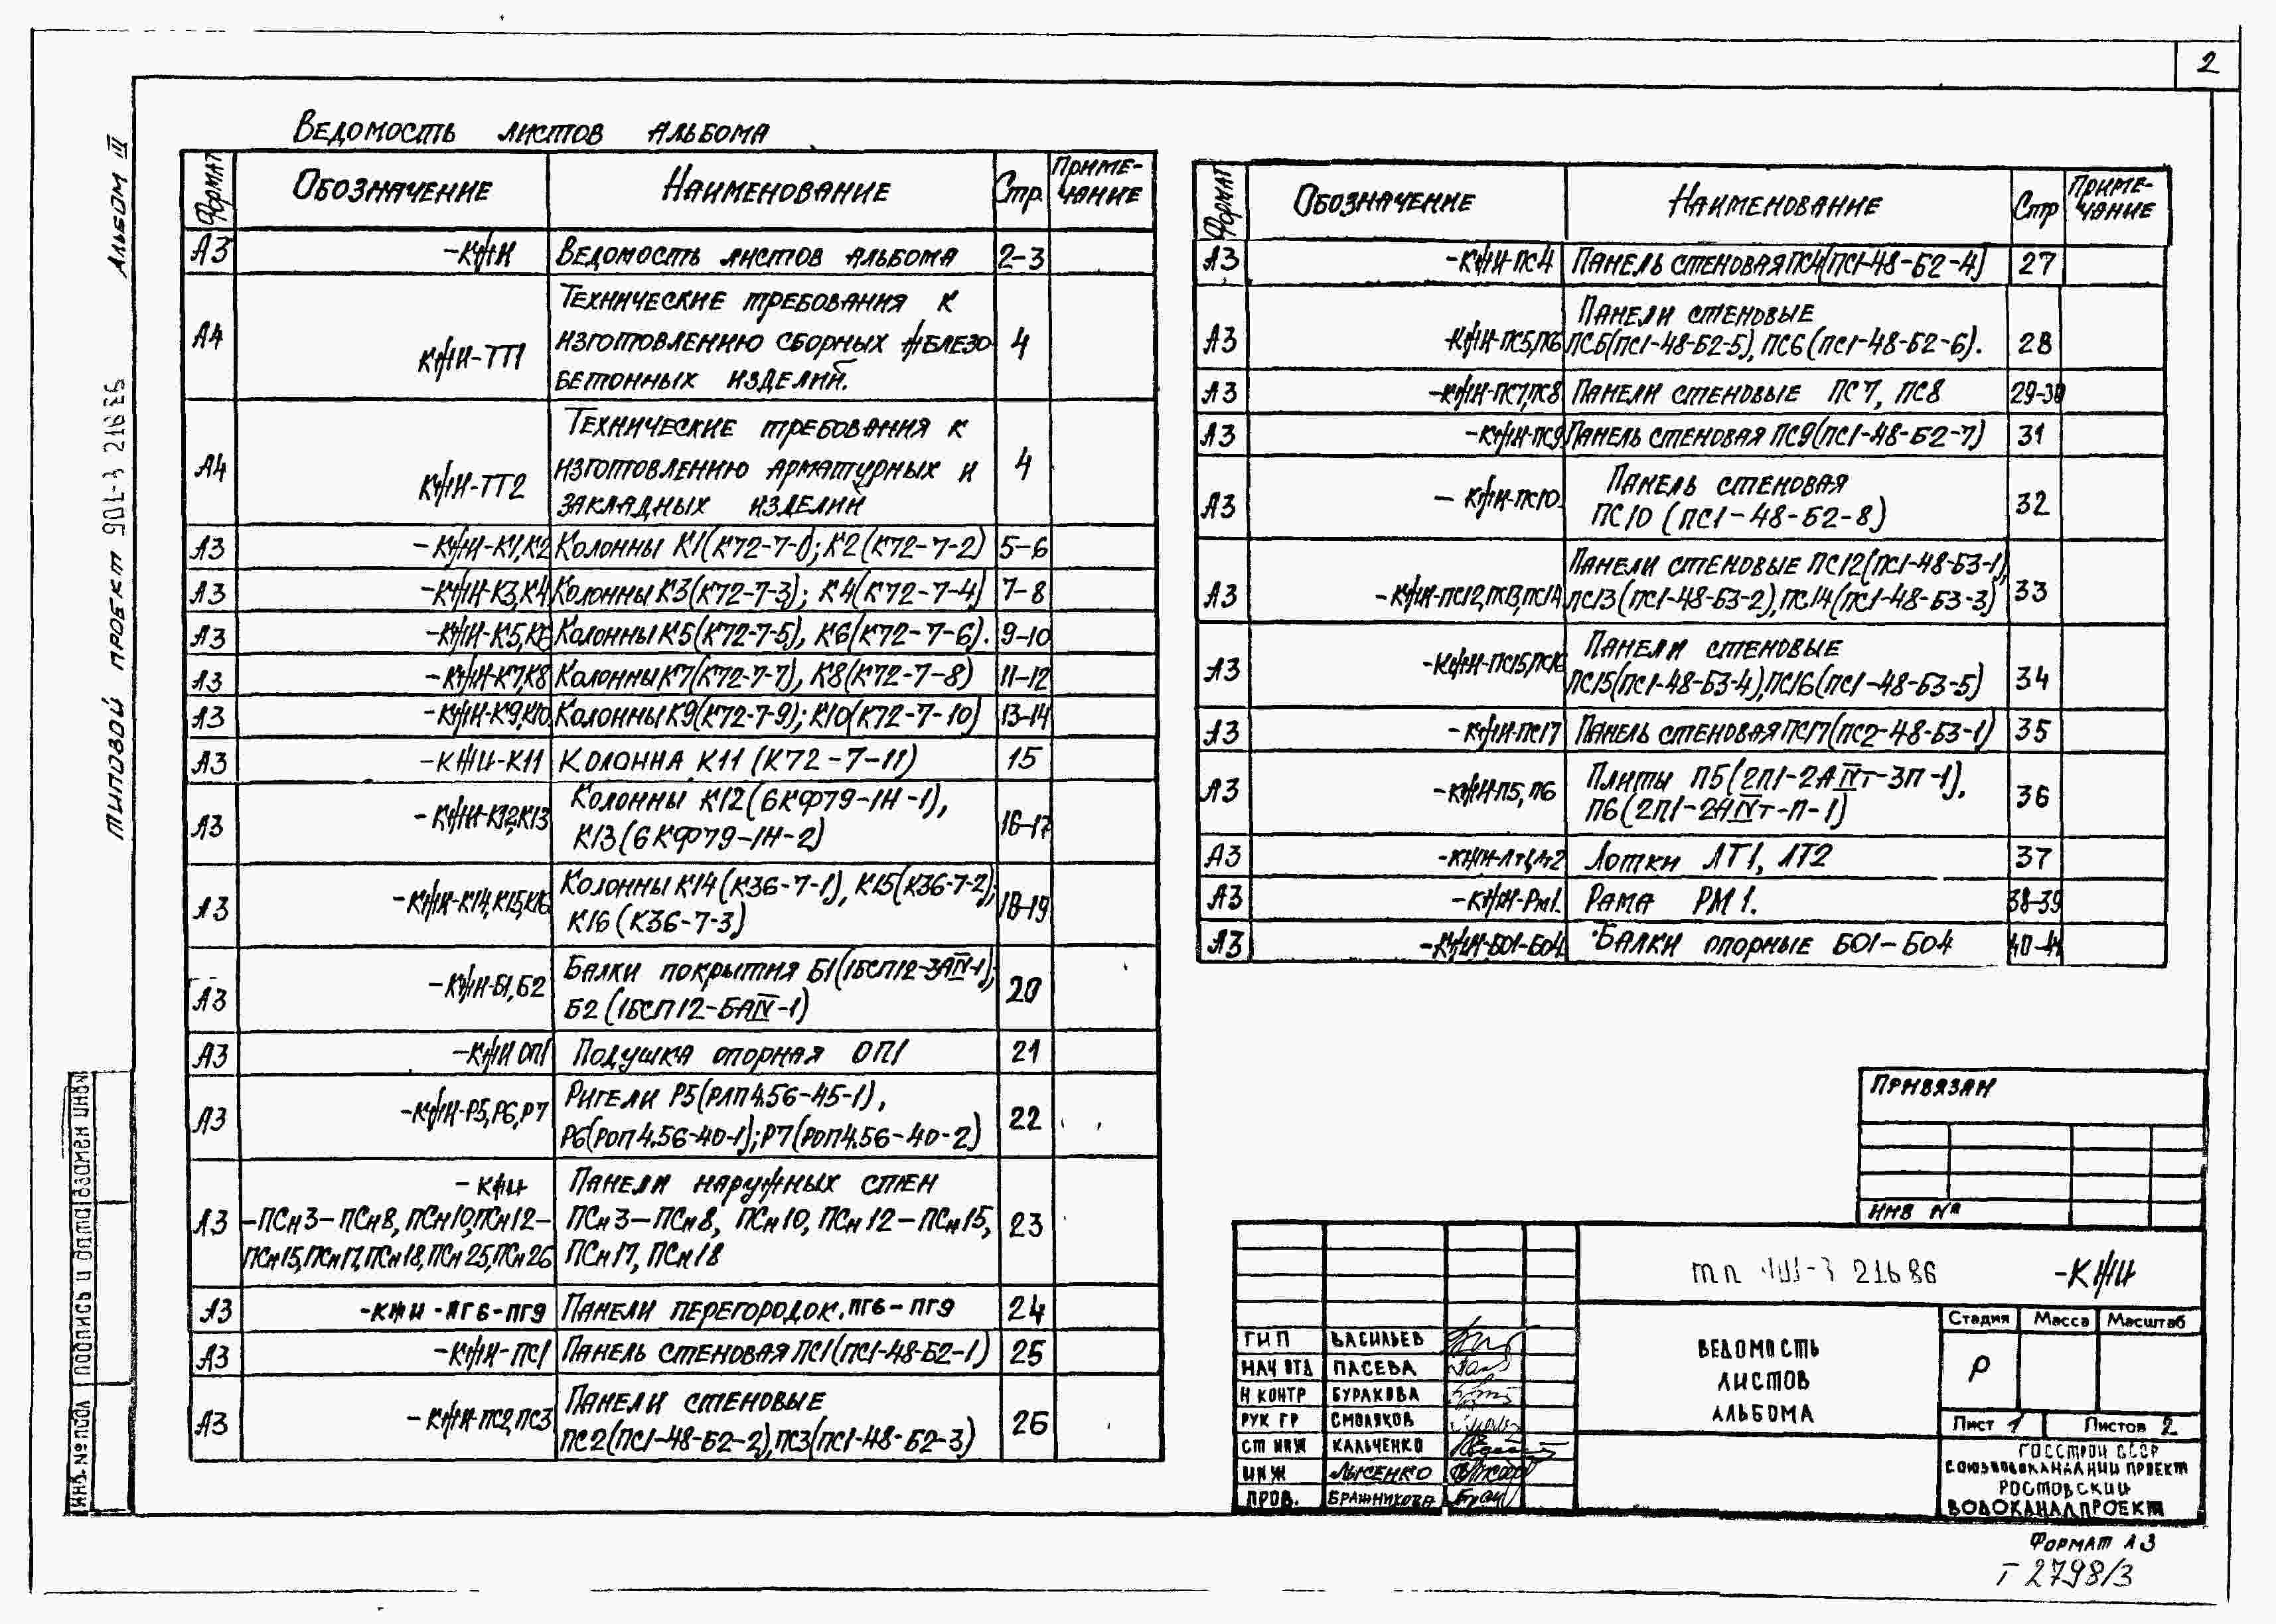 2
Альбом III
Типовой проект 901-3-216.86
Ведомость листов альбома
Формат Обозначение Наименование Стр. Примечание
А3 -КЖИ Ведомость листов альбома 2-3
Технические требования к
А4 КЖИ-ТТ1 изготовлению сборных железо 4
бетонных изделий.
Технические требования к
А4 КЖИ-ТТ2 изготовлению арматурных и 4
закладных изделий
А3 -КЖИ-К1,К2 Колонны К1(К72-7-1); К2(К72-7-2) 5-6
А3 -КЖИ-К3,К4 Колонны К3(К72-7-3); К4(К72-7-4) 7-8
А3 -КЖИ-К5,К6 Колонны К5(К72-7-5), К6(К72-7-6). 9-10
А3 -КЖИ-К7,К8 Колонны К7(К72-7-7), К8(К72-7-8) 11-12
А3 -КЖИ-К9,К10 Колонны К9(К72-7-9); К10(К72-7-10) 13-14
А3 -КЖИ-К11 Колонна К11 (К72-7-11) 15
А3 -КЖИ-К12,К13 Колонны К12(6КФ79-1Н-1), 16-17
К13(6КФ79-1Н-2)
А3 -КЖИ-К14,К15,К16 Колонны К14(К36-7-1), К15(К36-7-2); 18-19
К16(К36-7-3)
А3 -КЖИ-Б1,Б2 Балки покрытия Б1(1БСП12-3АIV-1); 20
Б2(1БСП12-5АIV-1)
А3 -КЖИ ОП1 Подушка опорная ОП1 21
А3 -КЖИ-Р5,Р6,Р7 Ригели Р5(РЛП4.56-45-1), 22
Р6(РОП4.56-40-1); Р7(РОП4.56-40-2)
-КЖИ Панели наружных стен
А3 -ПСн3-ПСн8, ПСн10, ПСн12- ПСн3-ПСн8, ПСн10, ПСн12-ПСн15, 23
ПСн15, ПСн17, ПСн18, ПСн25, ПСн26 ПСн17, ПСн18
А3 -КЖИ-ПГ6-ПГ9 Панели перегородок. ПГ6-ПГ9 24
А3 -КЖИ-ПС1 Панель стеновая ПС1(ПС1-48-Б2-1) 25
А3 -КЖИ-ПС2,ПС3 Панели стеновые 26
ПС2(ПС1-48-Б2-2), ПС3(ПС1-48-Б2-3)
Формат Обозначение Наименование Стр Примечание
А3 -КЖИ-ПС4 Панель стеновая ПС4(ПС1-48-Б2-4) 27
Панели стеновые
А3 -КЖИ-ПС5,ПС6 ПС5(ПС1-48-Б2-5), ПС6(ПС1-48-Б2-6). 28
А3 -КЖИ-ПС7,ПС8 Панели стеновые ПС7, ПС8 29-30
А3 -КЖИ-ПС9 Панель стеновая ПС9(ПС1-48-Б2-7) 31
А3 -КЖИ-ПС10 Панель стеновая 32
ПС10 (ПС1-48-Б2-8)
Панели стеновые ПС12(ПС1-48-Б3-1)
А3 -КЖИ-ПС12,ПС13,ПС14 ПС13(ПС1-48-Б3-2), ПС14(ПС1-48-Б3-3) 33
Панели стеновые
А3 -КЖИ-ПС15,ПС16 ПС15(ПС1-48-Б3-4), ПС16(ПС1-48-Б3-5) 34
А3 -КЖИ-ПС17 Панель стеновая ПС17(ПС2-48-Б3-1) 35
А3 -КЖИ-П5,П6 Плиты П5(2П1-2АIVт-3П-1). 36
П6(2П1-2АIVт-П-1)
А3 -КЖИ-Лт1,Лт2 Лотки ЛТ1, ЛТ2 37
А3 -КЖИ-Рм1. Рама РМ1. 38-39
А3 -КЖИ-БО1-БО4 Балки опорные БО1-БО4 40-41
Привязан
Инв №
ТП 901-3-216.86 -КЖИ
ГИП Васильев
Нач отд Пасева
Н контр Буракова
Рук гр Смоляков
Ст инж Кальченко
Инж Лысенко
Пров. Бражникова
Ведомость
листов
альбома
Стадия Масса Масштаб
Р
Лист 1 Листов 2
Госстрой СССР
Союзводоканалниипроект
Ростовский
Водоканалпроект
Инв. № подл Подпись и дата Взамен инв №
Формат А3
Т 2798/3